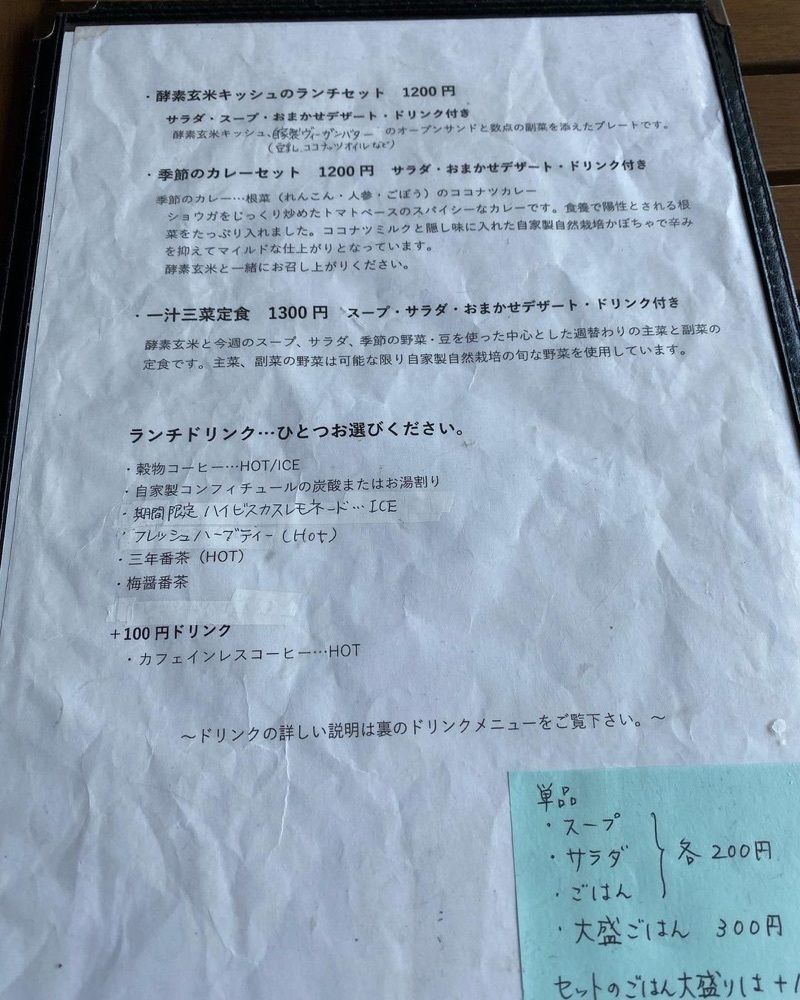 ・酵素玄米キッシュのランチセット　1200 円
サラダ・スープ・おまかせデザート・ドリンク付き
酵素玄米キッシュ、自家製ヴィーガンバター のオープンサンドと数点の副菜を添えたプレートです。
(豆乳、ココナッツオイルなど)
・季節のカレーセット　1200 円　サラダ・おまかせデザート・ドリンク付き
季節のカレー…根菜（れんこん・人参・ごぼう）のココナツカレー
ショウガをじっくり炒めたトマトベースのスパイシーなカレーです。食養で陽性とされる根
菜をたっぷり入れました。ココナツミルクと隠し味に入れた自家製自然栽培かぼちゃで辛み
を抑えてマイルドな仕上がりとなっています。
酵素玄米と一緒にお召し上がりください。
・一汁三菜定食　1300 円　スープ・サラダ・おまかせデザート・ドリンク付き
酵素玄米と今週のスープ、サラダ、季節の野菜・豆を使った中心とした週替わりの主菜と副菜の
定食です。主菜、副菜の野菜は可能な限り自家製自然栽培の旬な野菜を使用しています。
ランチドリンク…ひとつお選びください。
・穀物コーヒー…HOT/ICE
・自家製コンフィチュールの炭酸またはお湯割り
・期間限定 ハイビスカスレモネード…ICE
・フレッシュハーブティー (Hot)
・三年番茶（HOT）
・梅醤番茶
＋100 円ドリンク
・カフェインレスコーヒー…HOT
～ドリンクの詳しい説明は裏のドリンクメニューをご覧下さい。～
単品
・スープ
・サラダ 各 200円
・ごはん
・大盛ごはん 300円
セットのごはん大盛りは +1